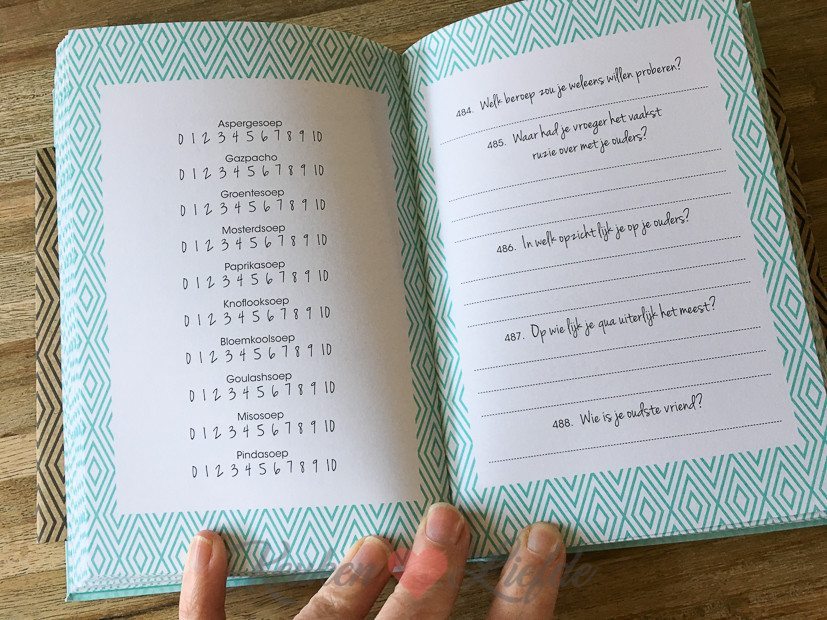 Aspergesoep
0 1 2 3 4 5 6 7 8 9 10
Gazpacho
0 1 2 3 4 5 6 7 8 9 10
Groentesoep
0 1 2 3 4 5 6 7 8 9 10
Mosterdsoep
0 1 2 3 4 5 6 7 8 9 10
Paprikasoep
0 1 2 3 4 5 6 7 8 9 10
Knoflooksoep
0 1 2 3 4 5 6 7 8 9 10
Bloemkoolsoep
0 1 2 3 4 5 6 7 8 9 10
Goulashsoep
0 1 2 3 4 5 6 7 8 9 10
Misosoep
0 1 2 3 4 5 6 7 8 9 10
Pindasoep
0 1 2 3 4 5 6 7 8 9 10
484. Welk beroep zou je weleens willen proberen?
485. Waar had je vroeger het vaakst
ruzie over met je ouders?
486. In welk opzicht lijk je op je ouders?
487. Op wie lijk je qua uiterlijk het meest?
488. Wie is je oudste vriend?
Keuken Liefde